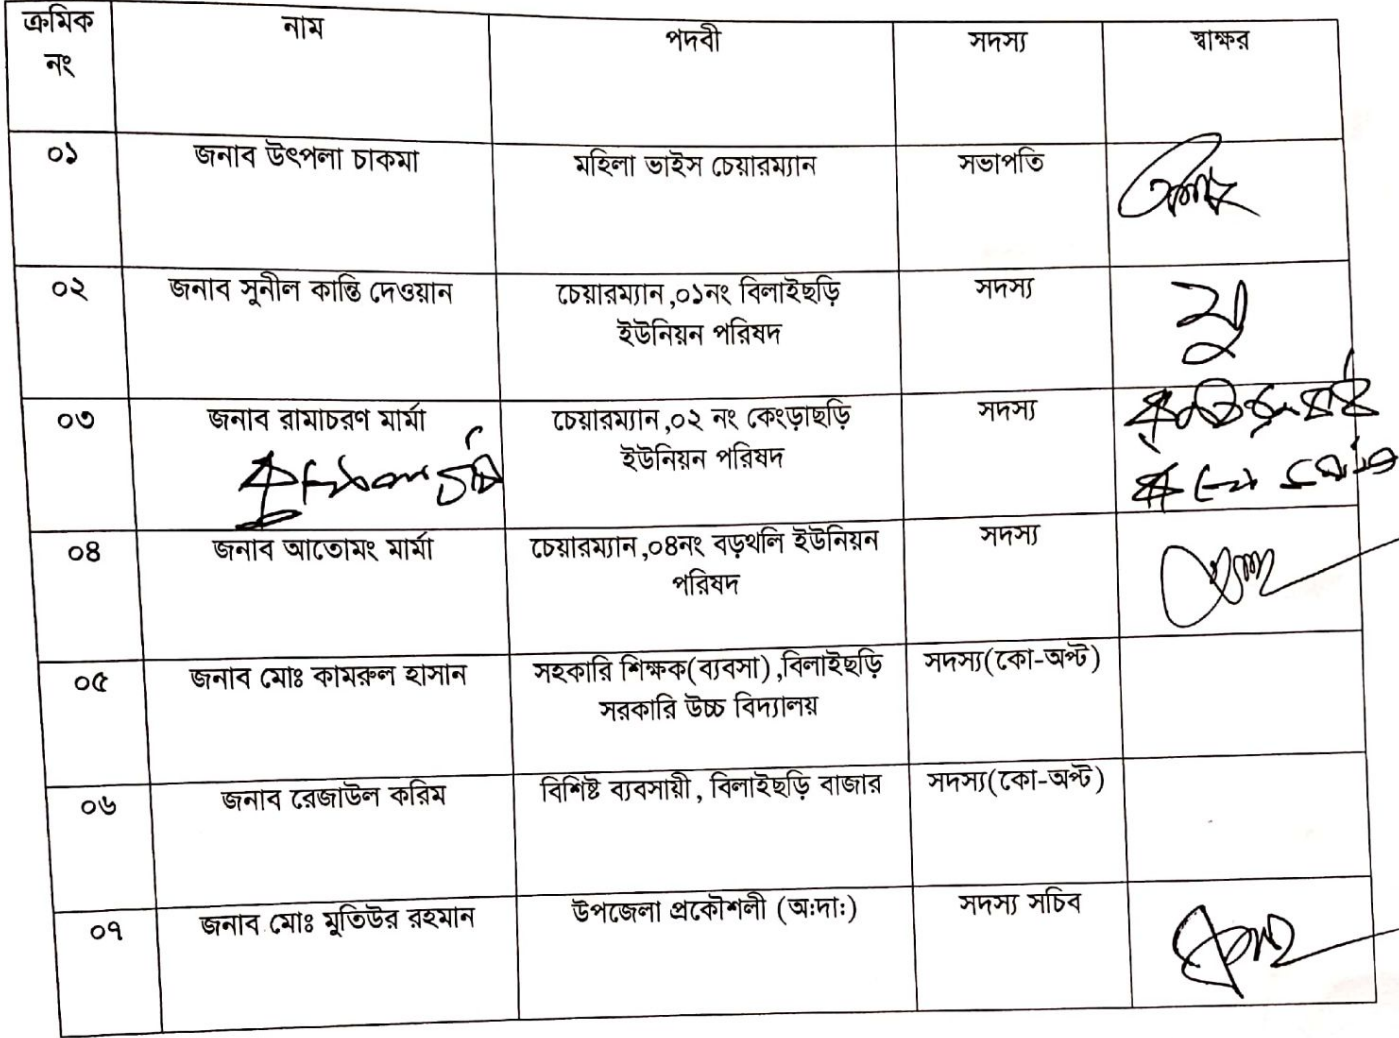 ক্রমিক নং নাম পদবী সদস্য স্বাক্ষর
০১ জনাব উৎপলা চাকমা মহিলা ভাইস চেয়ারম্যান সভাপতি
০২ জনাব সুনীল কান্তি দেওয়ান চেয়ারম্যান,০১নং বিলাইছড়ি সদস্য
ইউনিয়ন পরিষদ
০৩ জনাব রামাচরণ মার্মা চেয়ারম্যান,০২ নং কেংড়াছড়ি সদস্য
ইউনিয়ন পরিষদ
০৪ জনাব আতোমং মার্মা চেয়ারম্যান,০৪নং বড়থলি ইউনিয়ন সদস্য
পরিষদ
০৫ জনাব মোঃ কামরুল হাসান সহকারি শিক্ষক(ব্যবসা),বিলাইছড়ি সদস্য(কো-অপ্ট)
সরকারি উচ্চ বিদ্যালয়
০৬ জনাব রেজাউল করিম বিশিষ্ট ব্যবসায়ী, বিলাইছড়ি বাজার সদস্য(কো-অপ্ট)
০৭ জনাব মোঃ মুতিউর রহমান উপজেলা প্রকৌশলী (অ:দা:) সদস্য সচিব